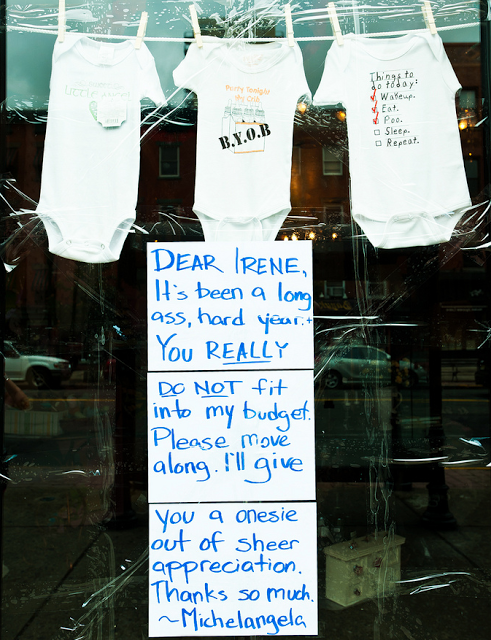 LITTLE
Party Tonight
My Crib
B.Y.O.B
Things to
do today:
Wakeup.
Eat.
Poo.
Sleep.
Repeat.
DEAR IRENE,
It's been a long
ass, hard year. +
YOU REALLY
DO NOT fit
into my budget.
Please move
along. I'll give
you a onesie
out of sheer
appreciation.
Thanks so much.
~Michelangela